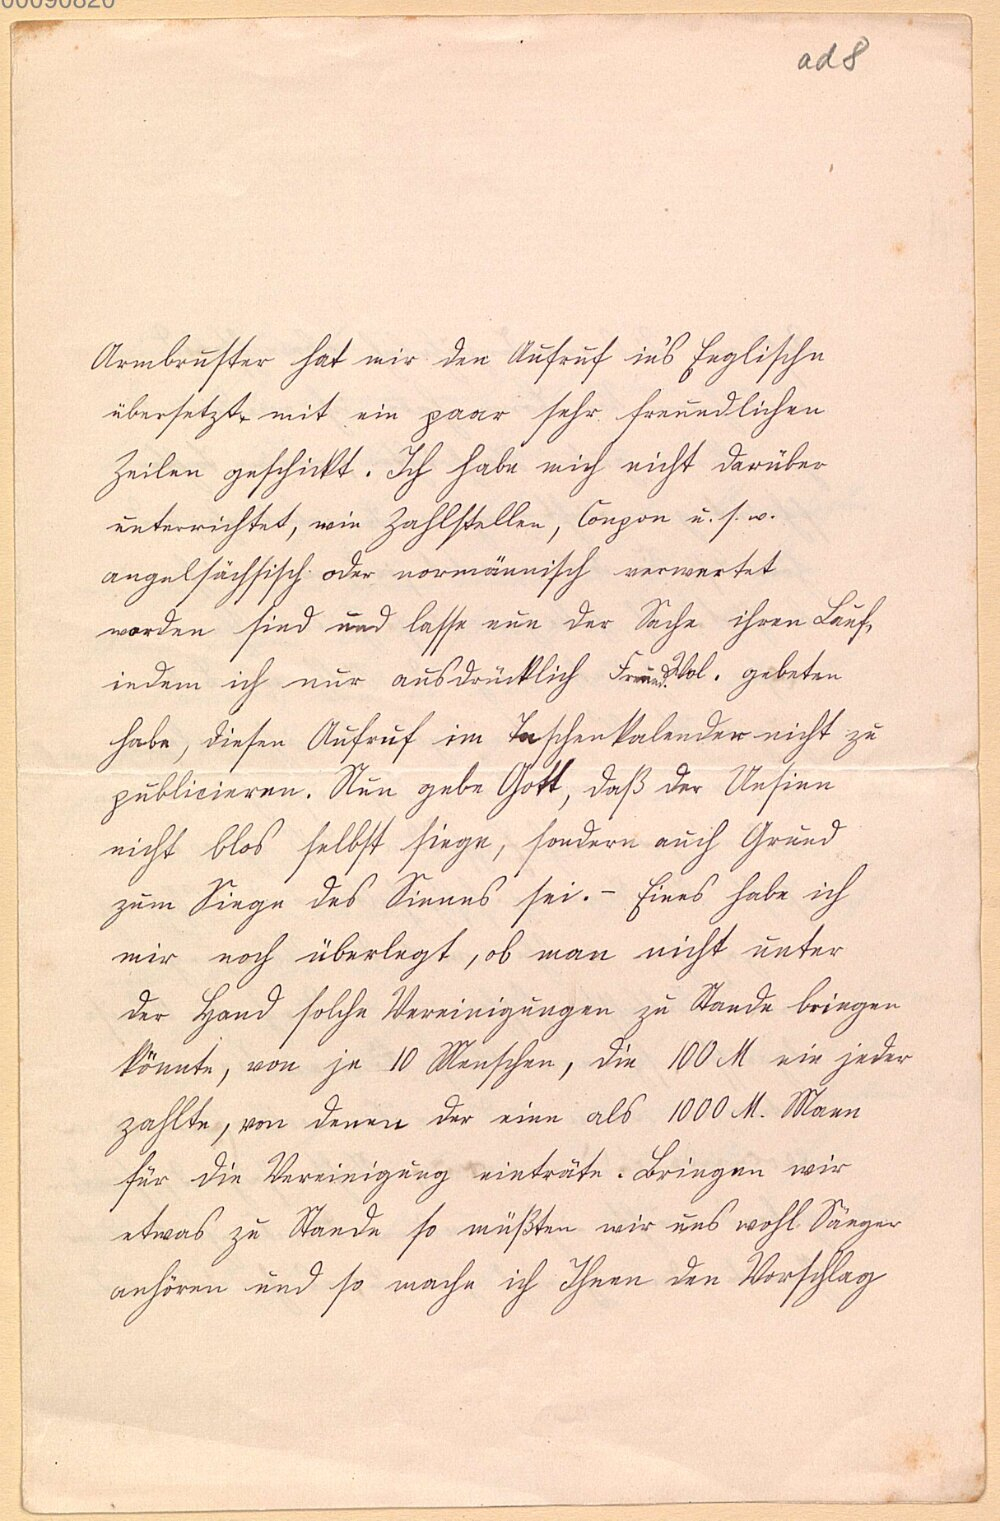 00090820
ad 8
Armbruster hat mir den Aufruf in's Englische
übersetzt, mit ein paar sehr freundlichen
Zeilen geschickt. Ich habe mich nicht darüber
unterrichtet, wie Zahlstellen, Coupon u. s. w.
angelsächsisch oder normännisch verwertet
worden sind und lasse nun der Sache ihren Lauf,
indem ich nur ausdrücklich Freund Wol. gebeten
habe, diesen Aufruf im Taschenkalender nicht zu
publicieren. Nun gebe Gott, daß der Unsinn
nicht blos selbst siege, sondern auch Grund
zum Siege des Sinnes sei. – Eines habe ich
mir noch überlegt, ob man nicht unter
der Hand solche Vereinigungen zu Stande bringen
könnte, von je 10 Menschen, die 100 M ein jeder
zahlte, von denen der eine als 1000 M. Mann
für die Vereinigung einträte. Bringen wir
etwas zu Stande so müßten wir uns wohl Sänger
anhören und so mache ich Ihnen den Vorschlag